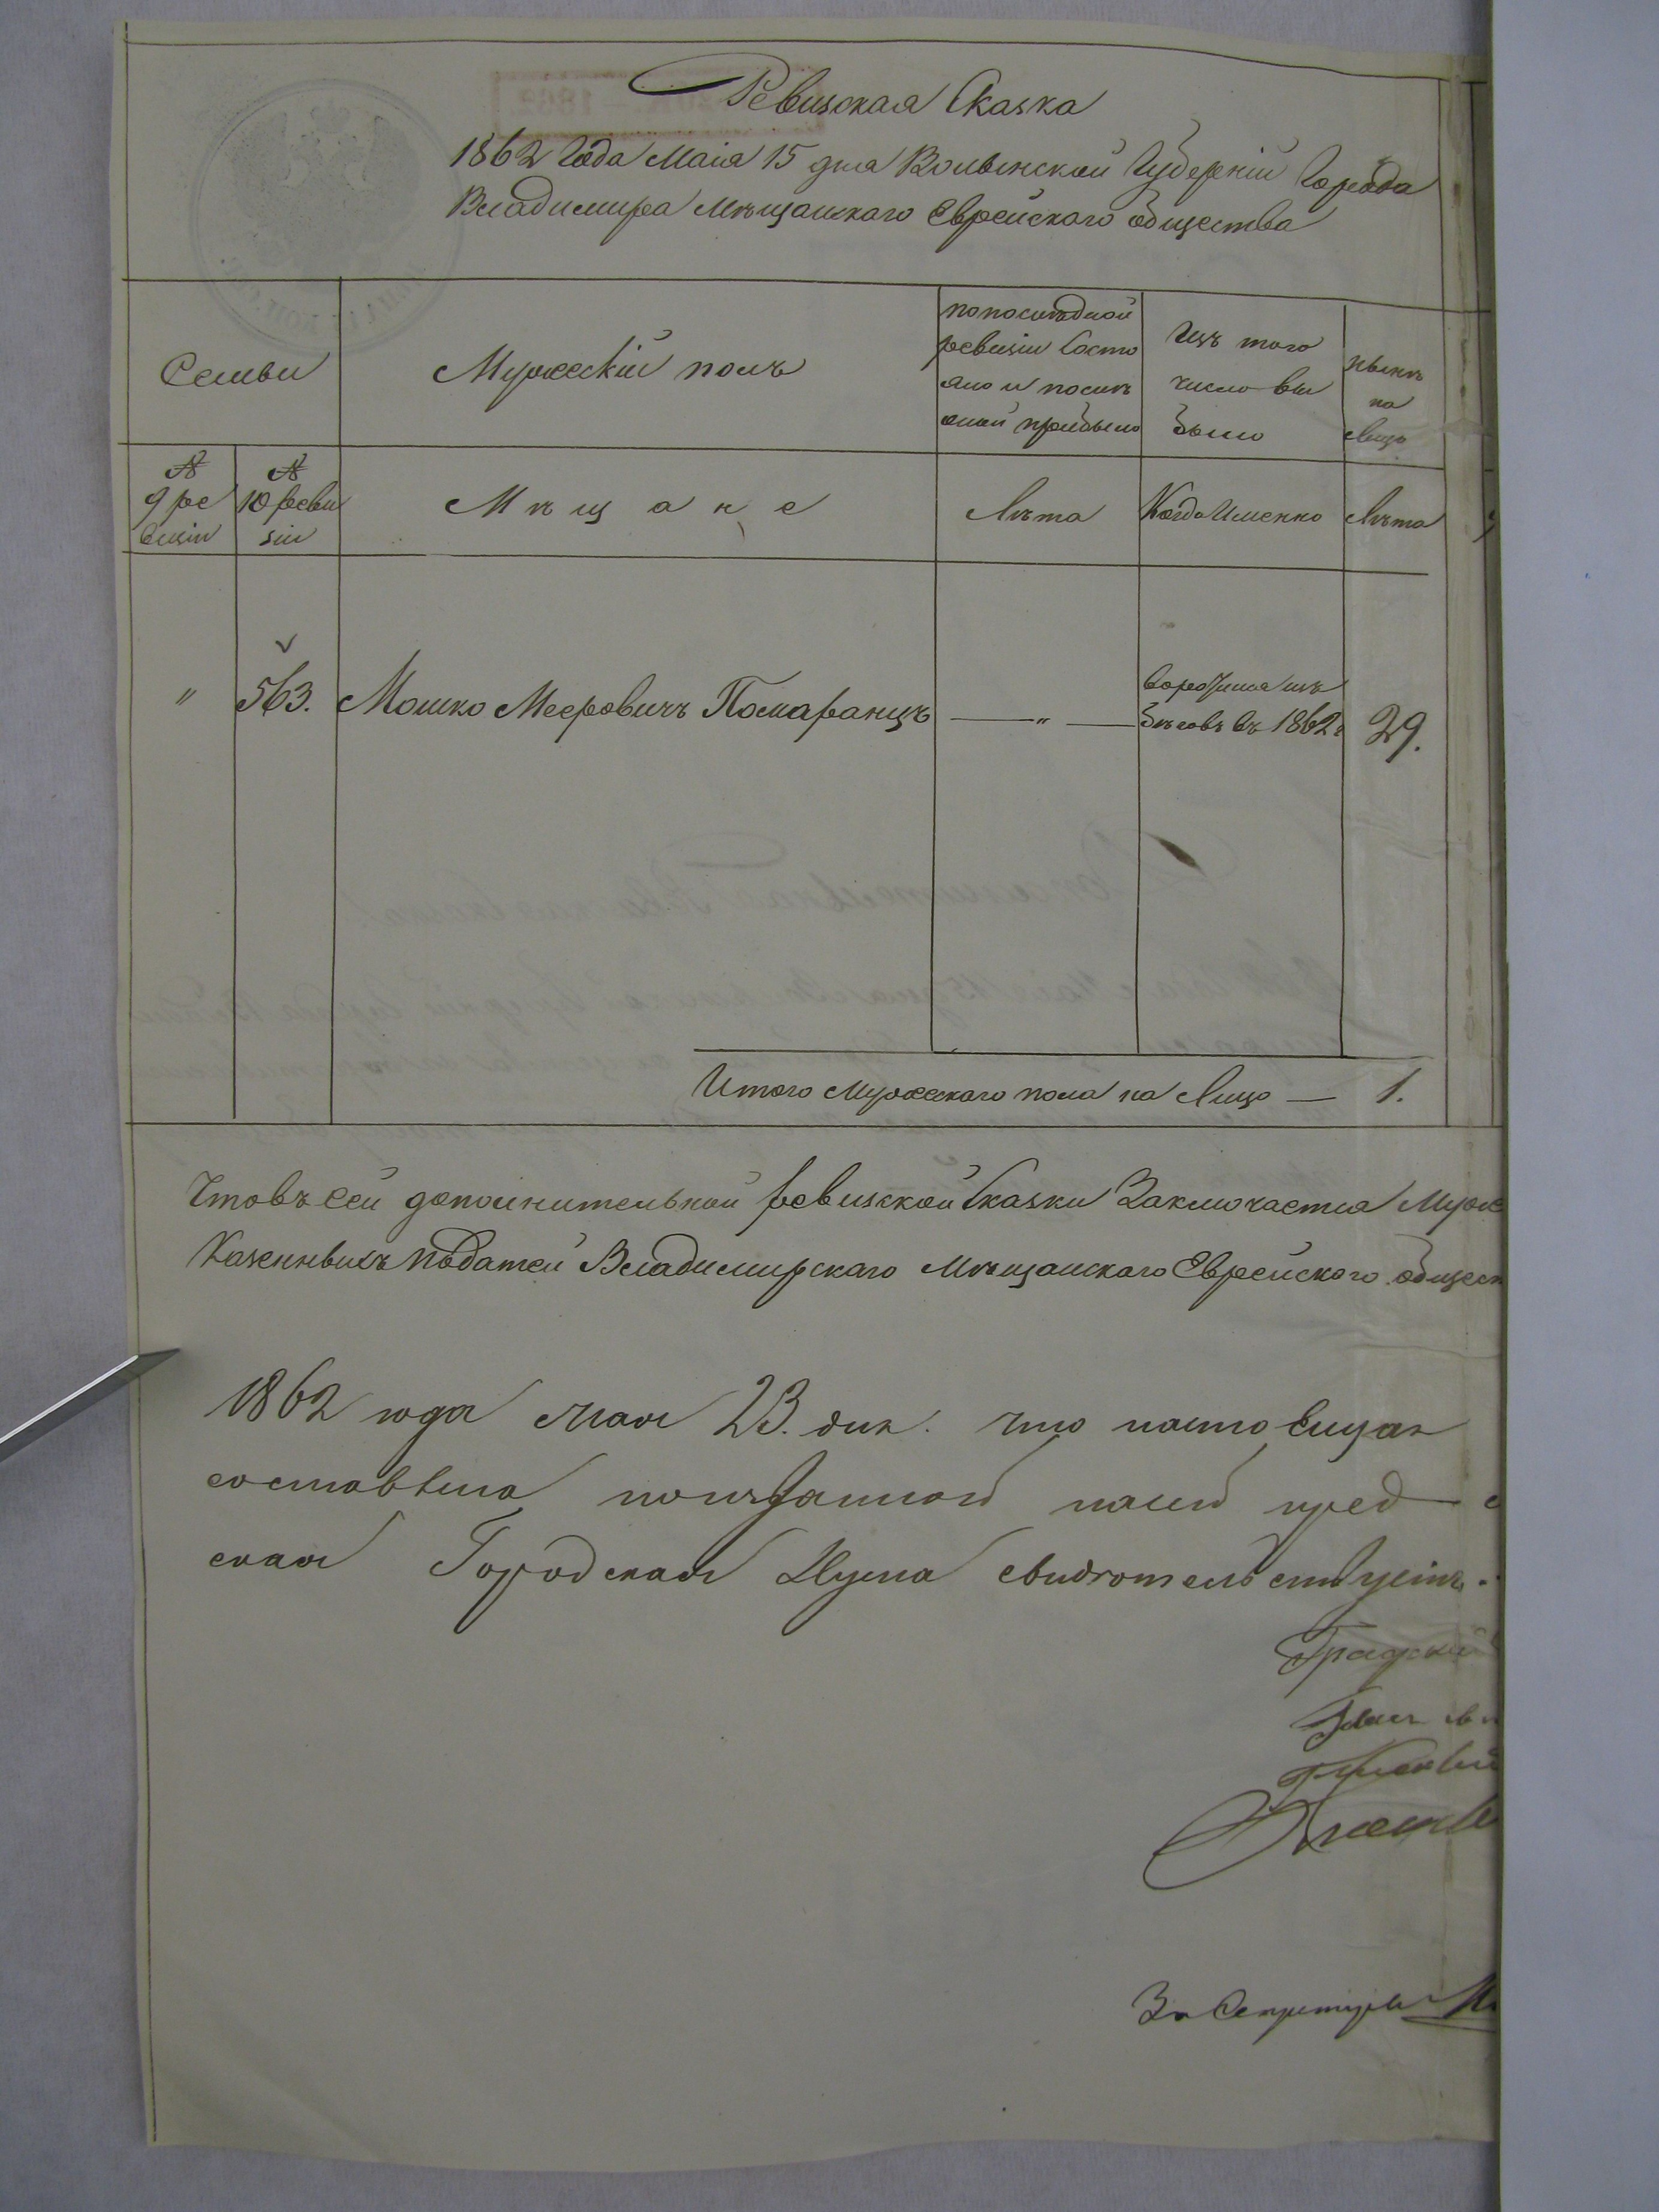 Ревизская Сказка
1862 Года Маія 15 дня Волынской Губерніи Города
Владимира Мѣщанскаго Еврейскаго общества
Семьи
Мужескій полъ
по послѣдной
ревизіи Состо
яло и послѣ
оной прибыло
Изъ того
число вы
было
нынѣ
на
Лицо
№
9 ре
визіи
№
10 реви
зіи
Мѣщане
Лѣта
Когда Именно
Лѣта
" 563. Мошко Мееровичъ Померанцъ — " — 29.
изъ
бѣговъ въ 1862 г
Итого Мужескаго пола на Лицо — 1.
Что въ сей дополнительной ревизской Сказки Заключается Муже
Казенныхъ Податей Владимирскаго Мѣщанскаго Еврейского общест
1862 года мая 23. дня. что настоящая
составлена поизданной
ская Городская Дума свидѣтельствуетъ.
Градскій
За Секретаря